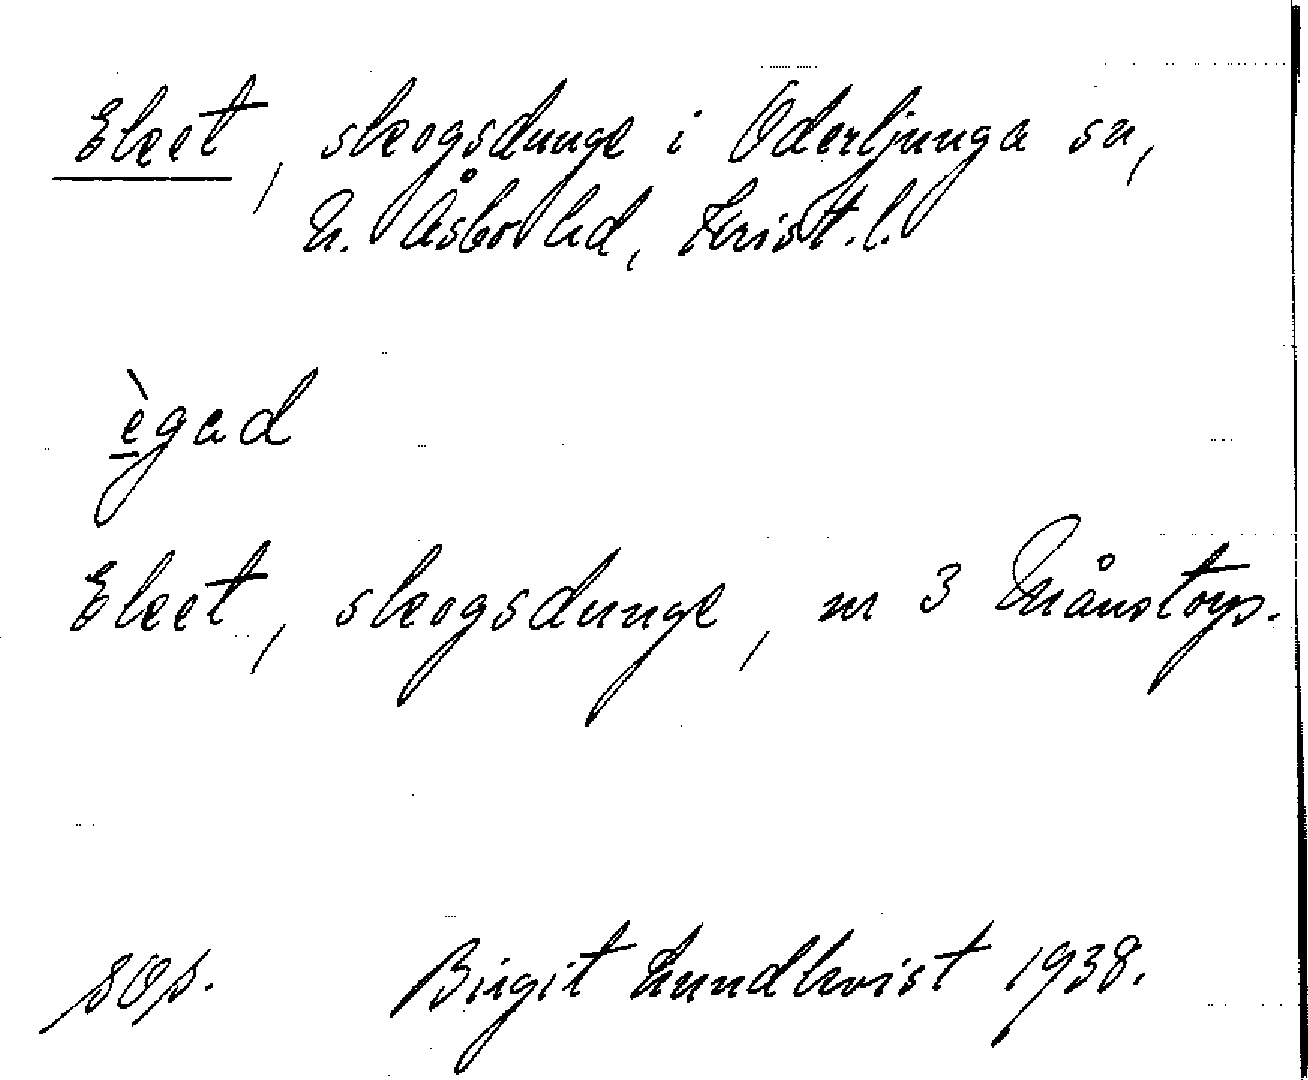 Eket, skogsdunge i Oderljunga sn,
N. Åsbo hd, Krist. l.
ègad
Eket, skogsdunge, nr 3 Månstorp.
Birgit Lundkvist 1938.